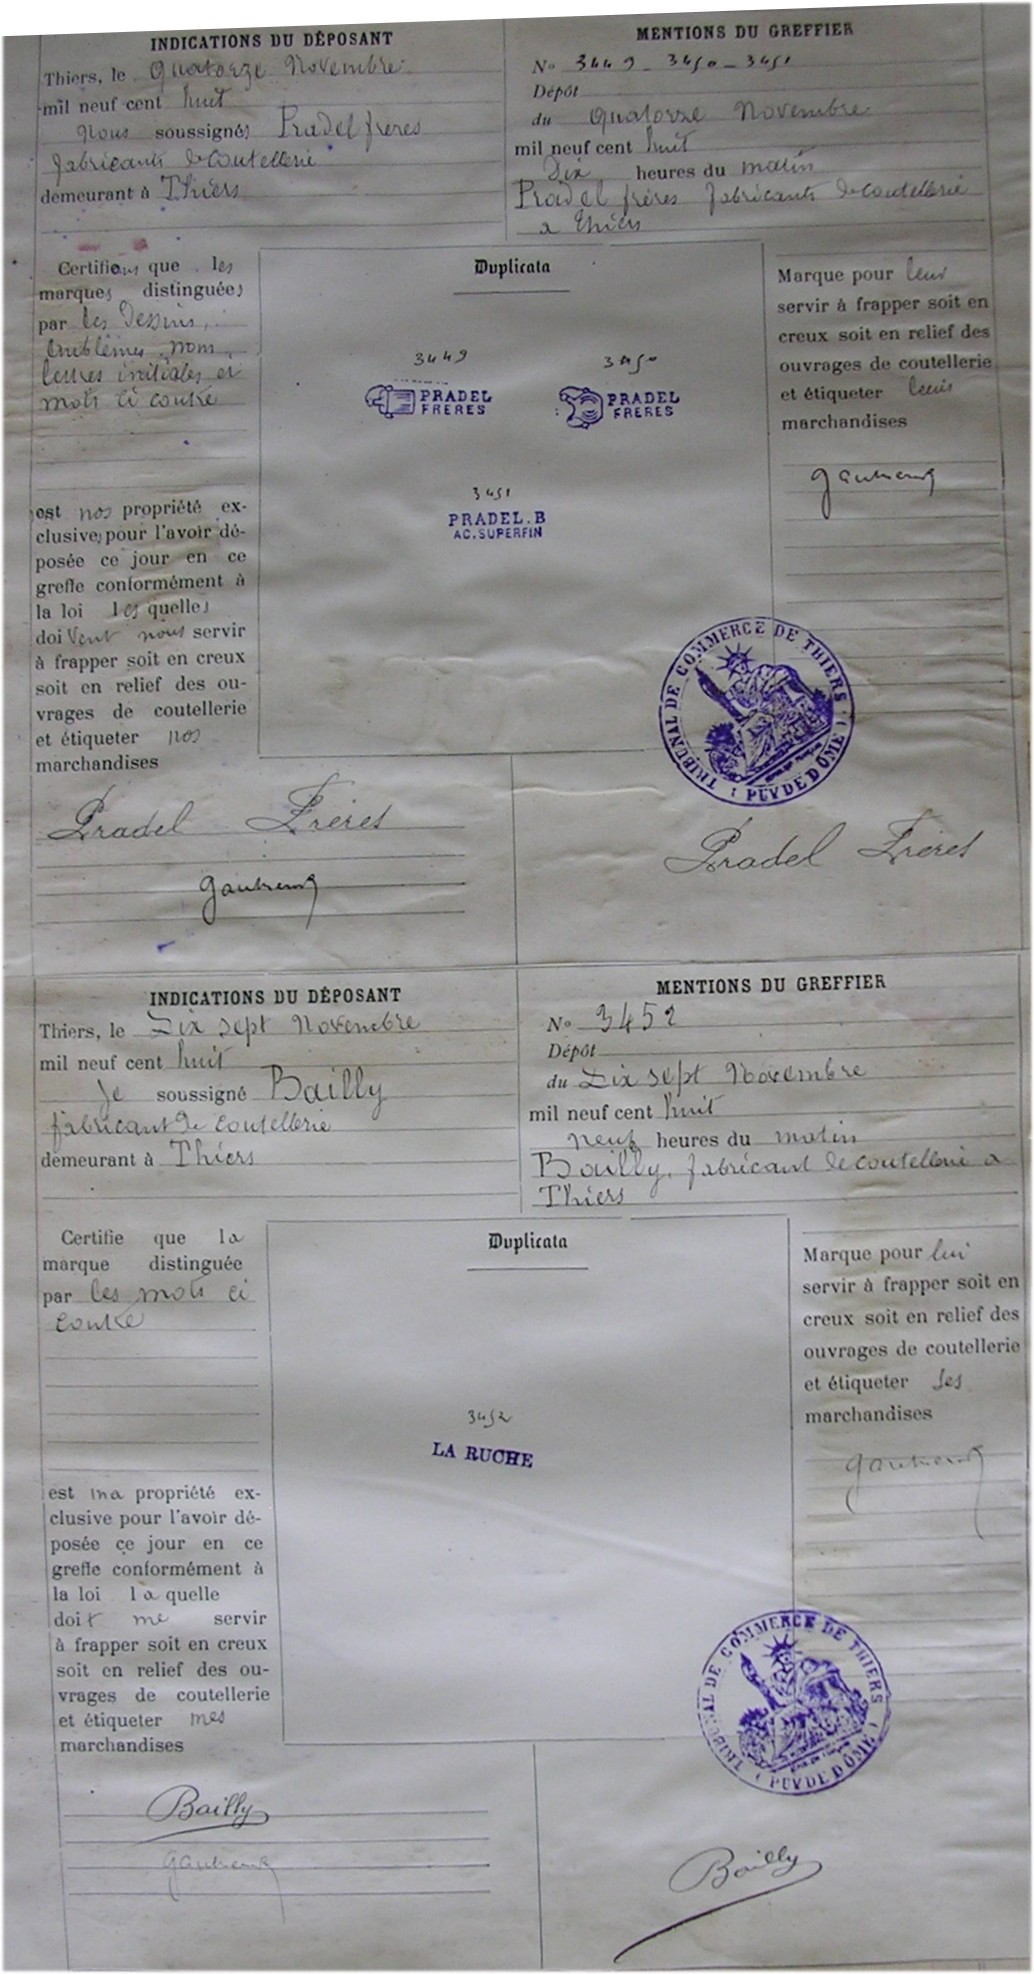 INDICATIONS DU DÉPOSANT
Thiers, le Quatorze Novembre
mil neuf cent huit
Nous soussignés Pradel frères
fabricants de coutellerie
demeurant à Thiers
MENTIONS DU GREFFIER
No 3449 - 3450 - 3451
Dépôt
du Quatorze Novembre
mil neuf cent huit
Dix heures du matin
Pradel frères fabricants de coutellerie
a Thiers
Certifions que les
marques distinguées
par les Dessins,
Emblèmes, nom,
lettres initiales et
mots ci contre
est nos propriété ex-
clusive, pour l'avoir dé-
posée ce jour en ce
greffe conformément à
la loi les quelles
doivent nous servir
à frapper soit en creux
soit en relief des ou-
vrages de coutellerie
et étiqueter nos
marchandises
Duplicata
3449
PRADEL
FRERES
3450
PRADEL
FRERES
3451
PRADEL.B
AC.SUPERFIN
Marque pour leur
servir à frapper soit en
creux soit en relief des
ouvrages de coutellerie
et étiqueter leurs
marchandises
TRIBUNAL DE COMMERCE DE THIERS
(PUY DE DÔME)
Pradel Frères
Pradel Frères
INDICATIONS DU DÉPOSANT
Thiers, le Dix sept Novembre
mil neuf cent huit
Je soussigné Bailly
fabricant de coutellerie
demeurant à Thiers
MENTIONS DU GREFFIER
No 3452
Dépôt
du Dix sept Novembre
mil neuf cent huit
neuf heures du matin
Bailly, fabricant de coutellerie a
Thiers
Certifie que la
marque distinguée
par les mots ci
contre
est ma propriété ex-
clusive pour l'avoir dé-
posée ce jour en ce
greffe conformément à
la loi la quelle
doit me servir
à frapper soit en creux
soit en relief des ou-
vrages de coutellerie
et étiqueter mes
marchandises
Duplicata
3452
LA RUCHE
Marque pour lui
servir à frapper soit en
creux soit en relief des
ouvrages de coutellerie
et étiqueter ses
marchandises
TRIBUNAL DE COMMERCE DE THIERS
(PUY DE DÔME)
Bailly
Bailly